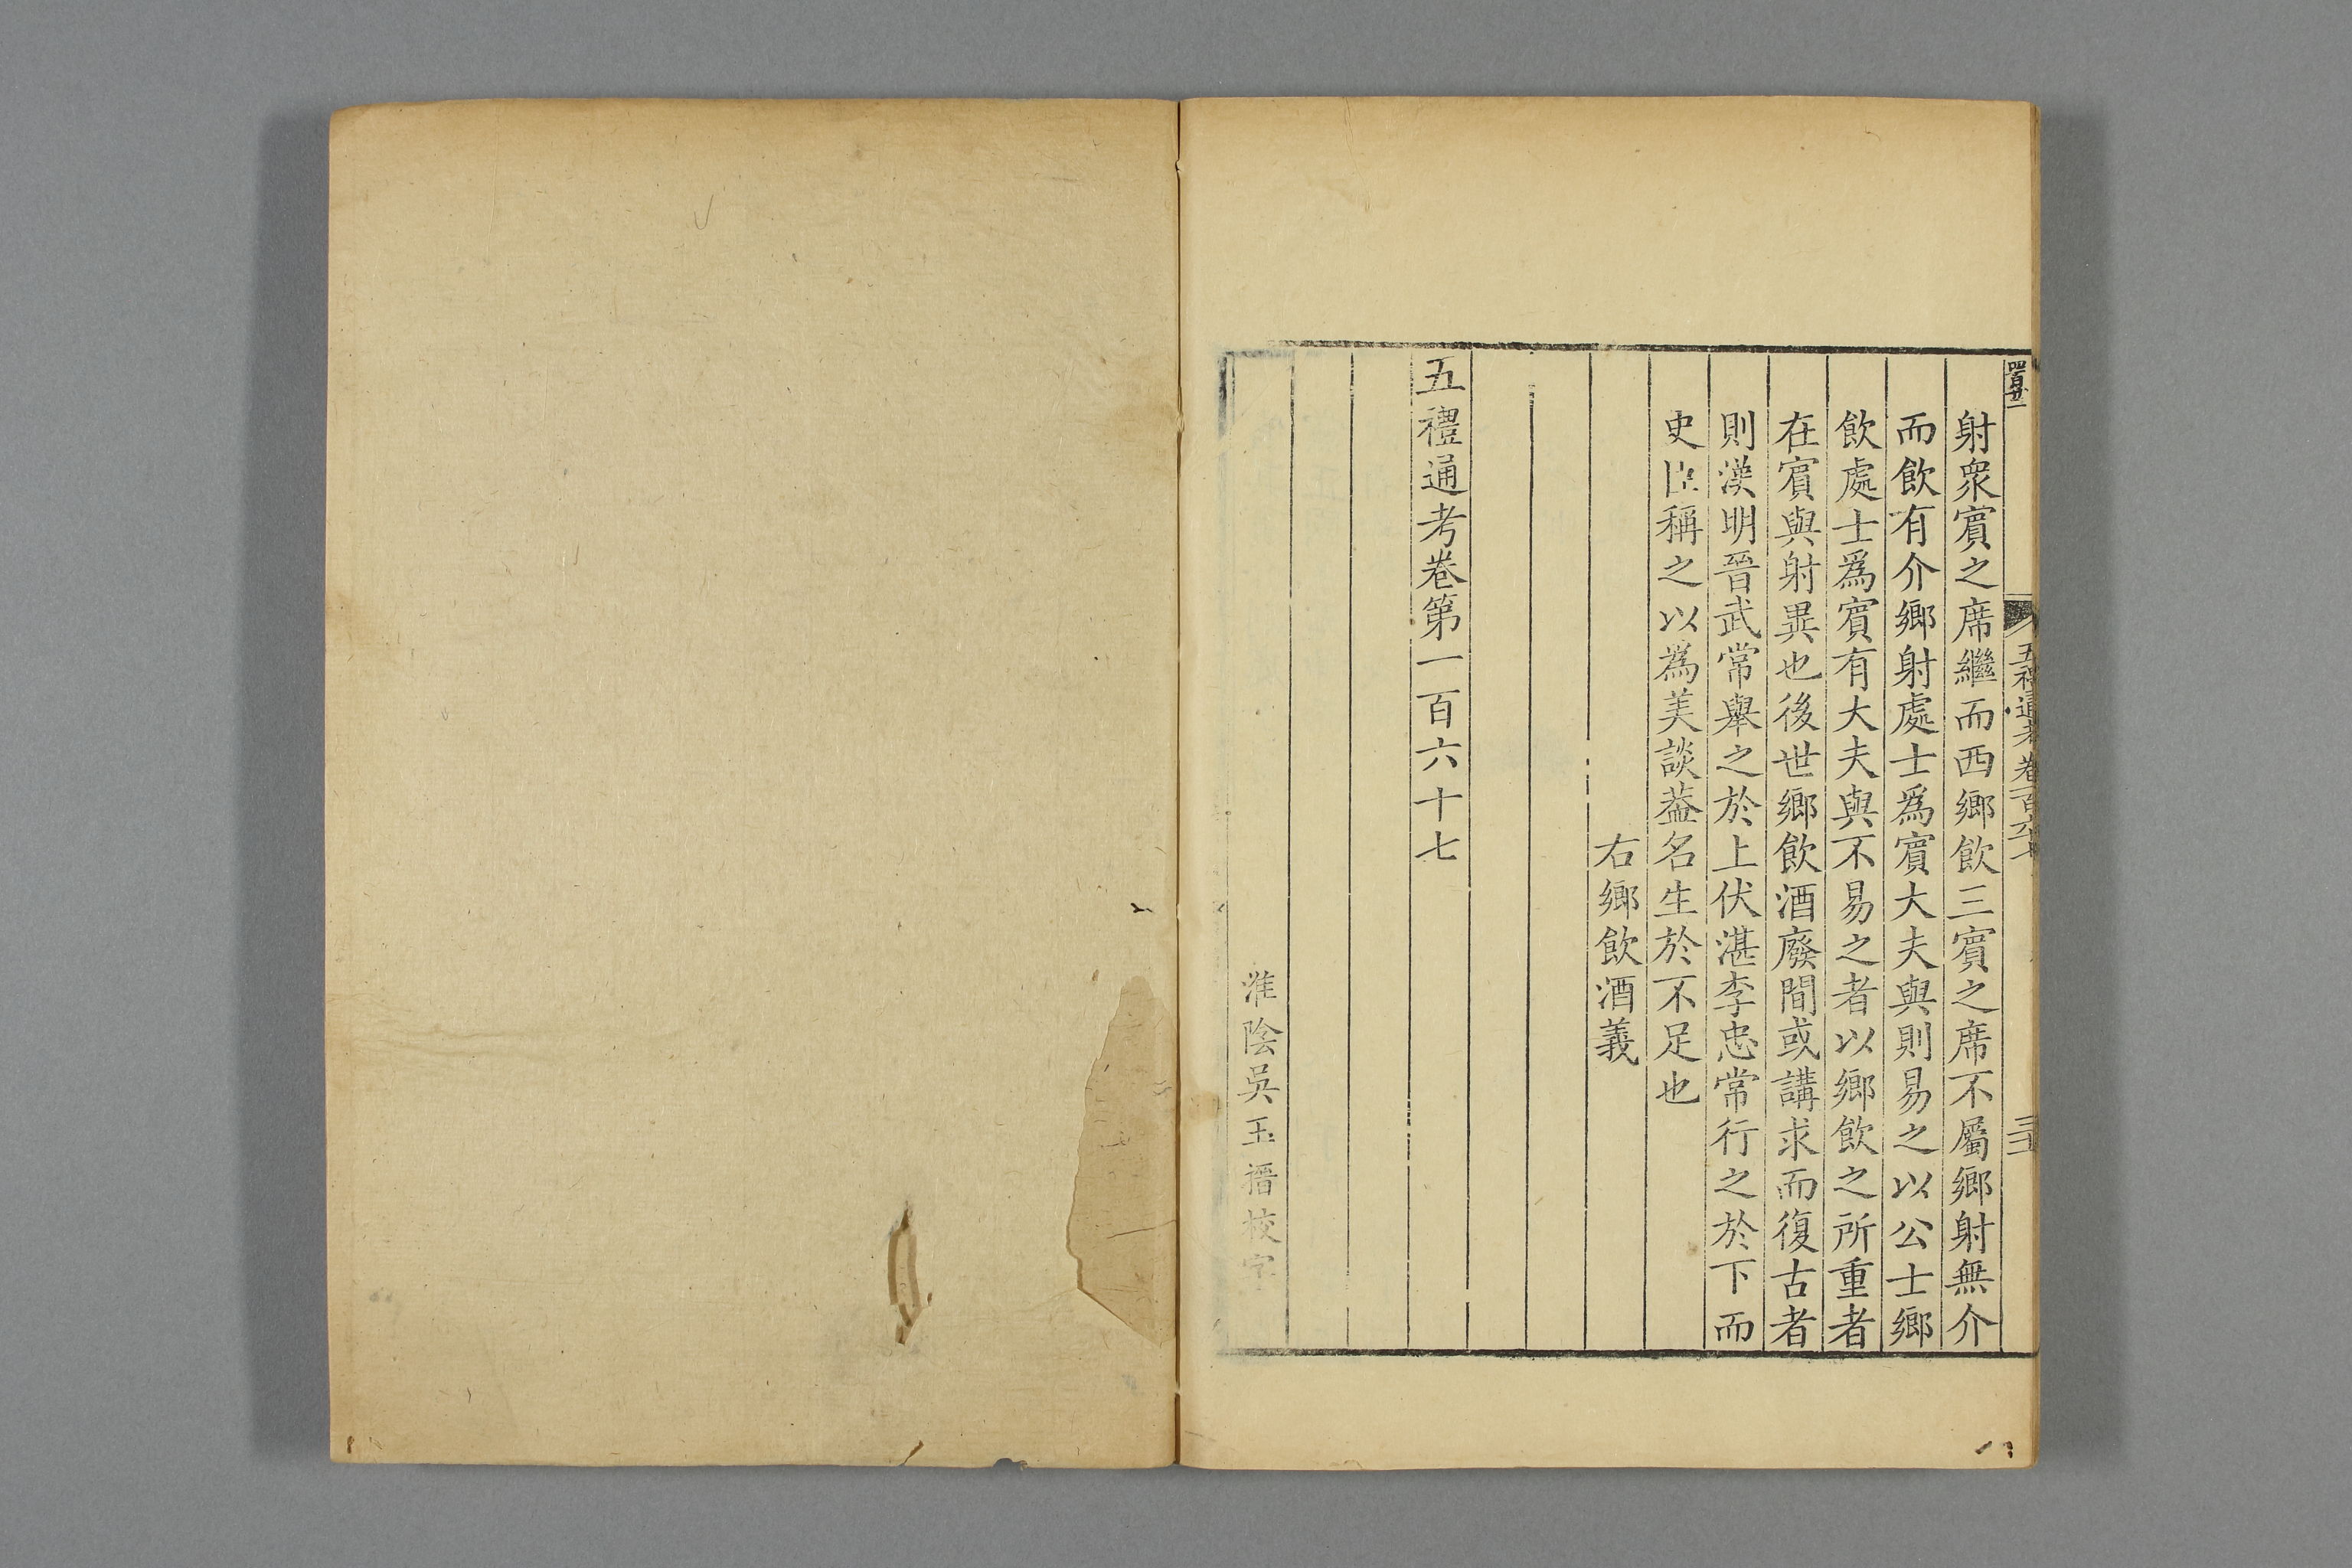 五禮通考卷一百六十七
射衆賔之席繼而西鄉飲三賔之席不屬鄉射無介
而飲有介鄉射處士爲賔大夫與則易之以公士鄉
飲處士爲賔有大夫與不易之者以鄉飲之所重者
在賔與射異也後世鄉飲酒廢間或講求而復古者
則漢明晉武常舉之於上伏湛李忠常行之於下而
史臣稱之以爲美談葢名生於不足也
右鄉飲酒義
五禮通考卷第一百六十七
淮陰吳玉搢校字